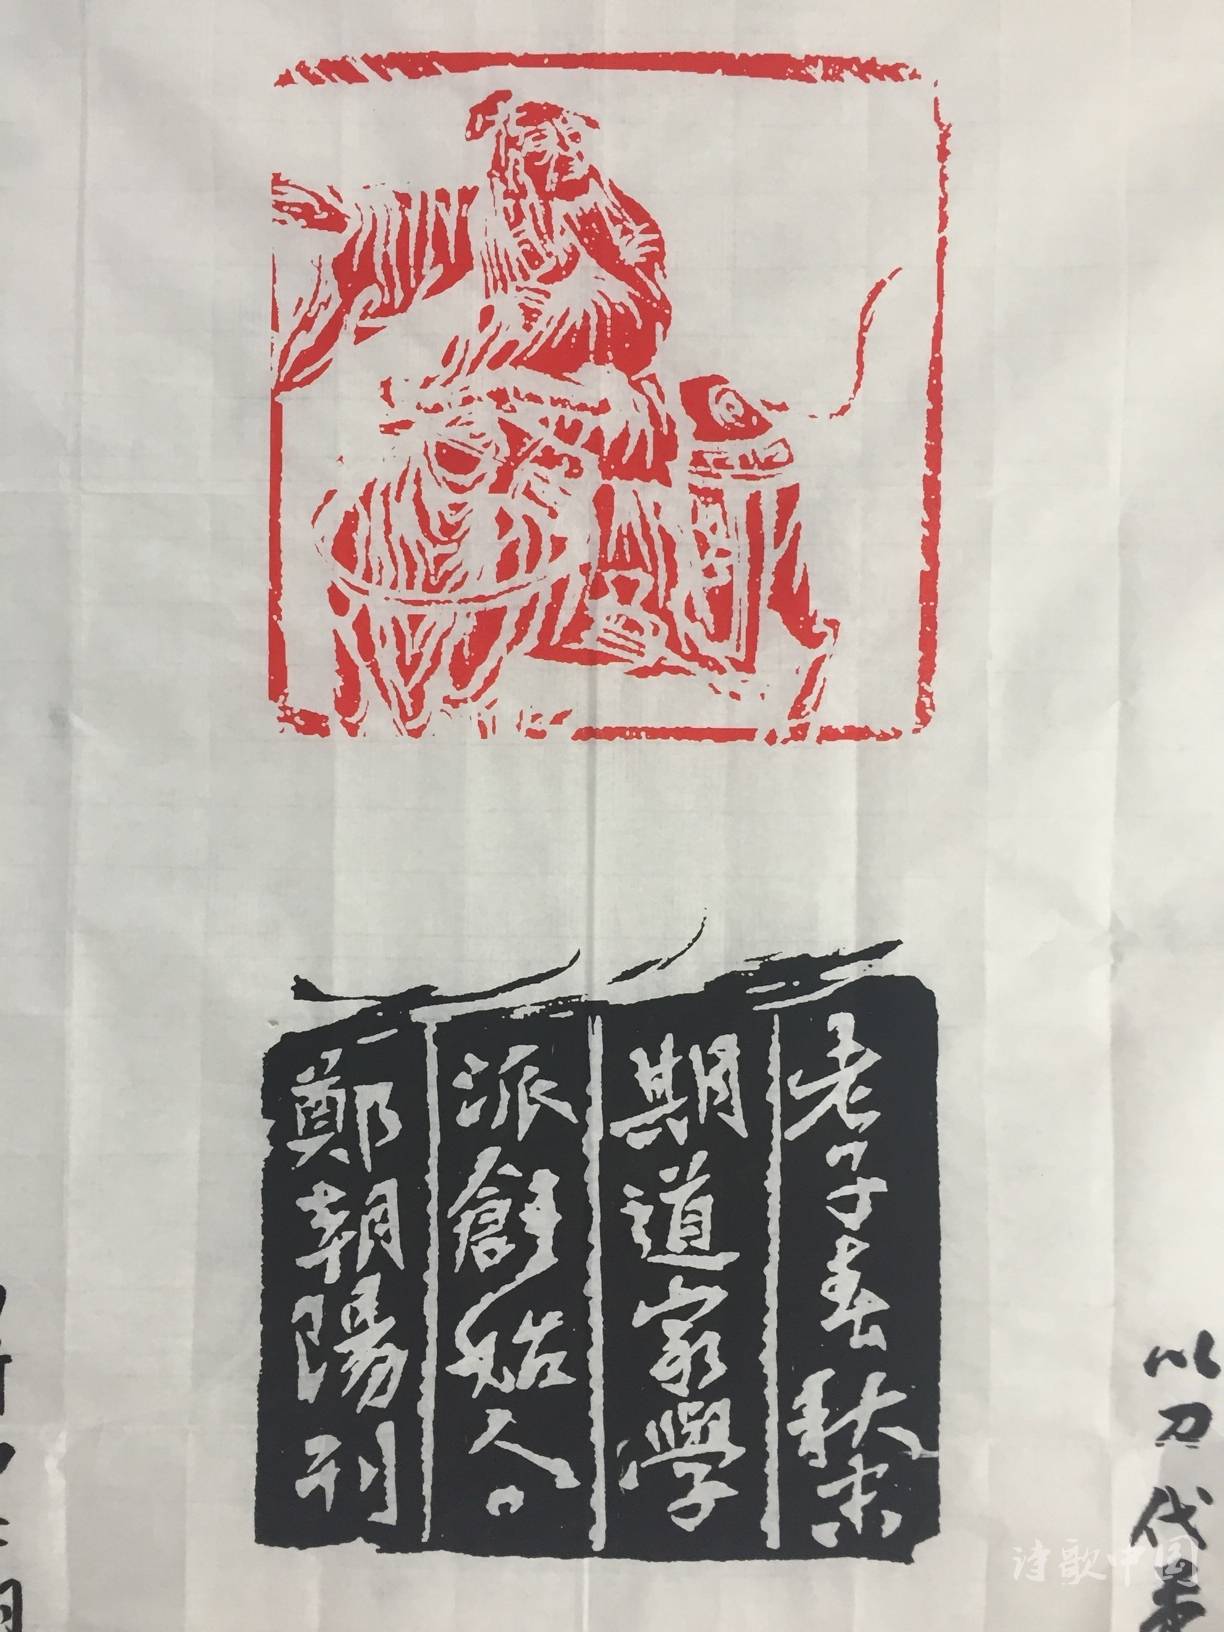 老子春秋末
期道家學
派創始人。
鄭朝陽刊
以刀代筆
诗歌中国